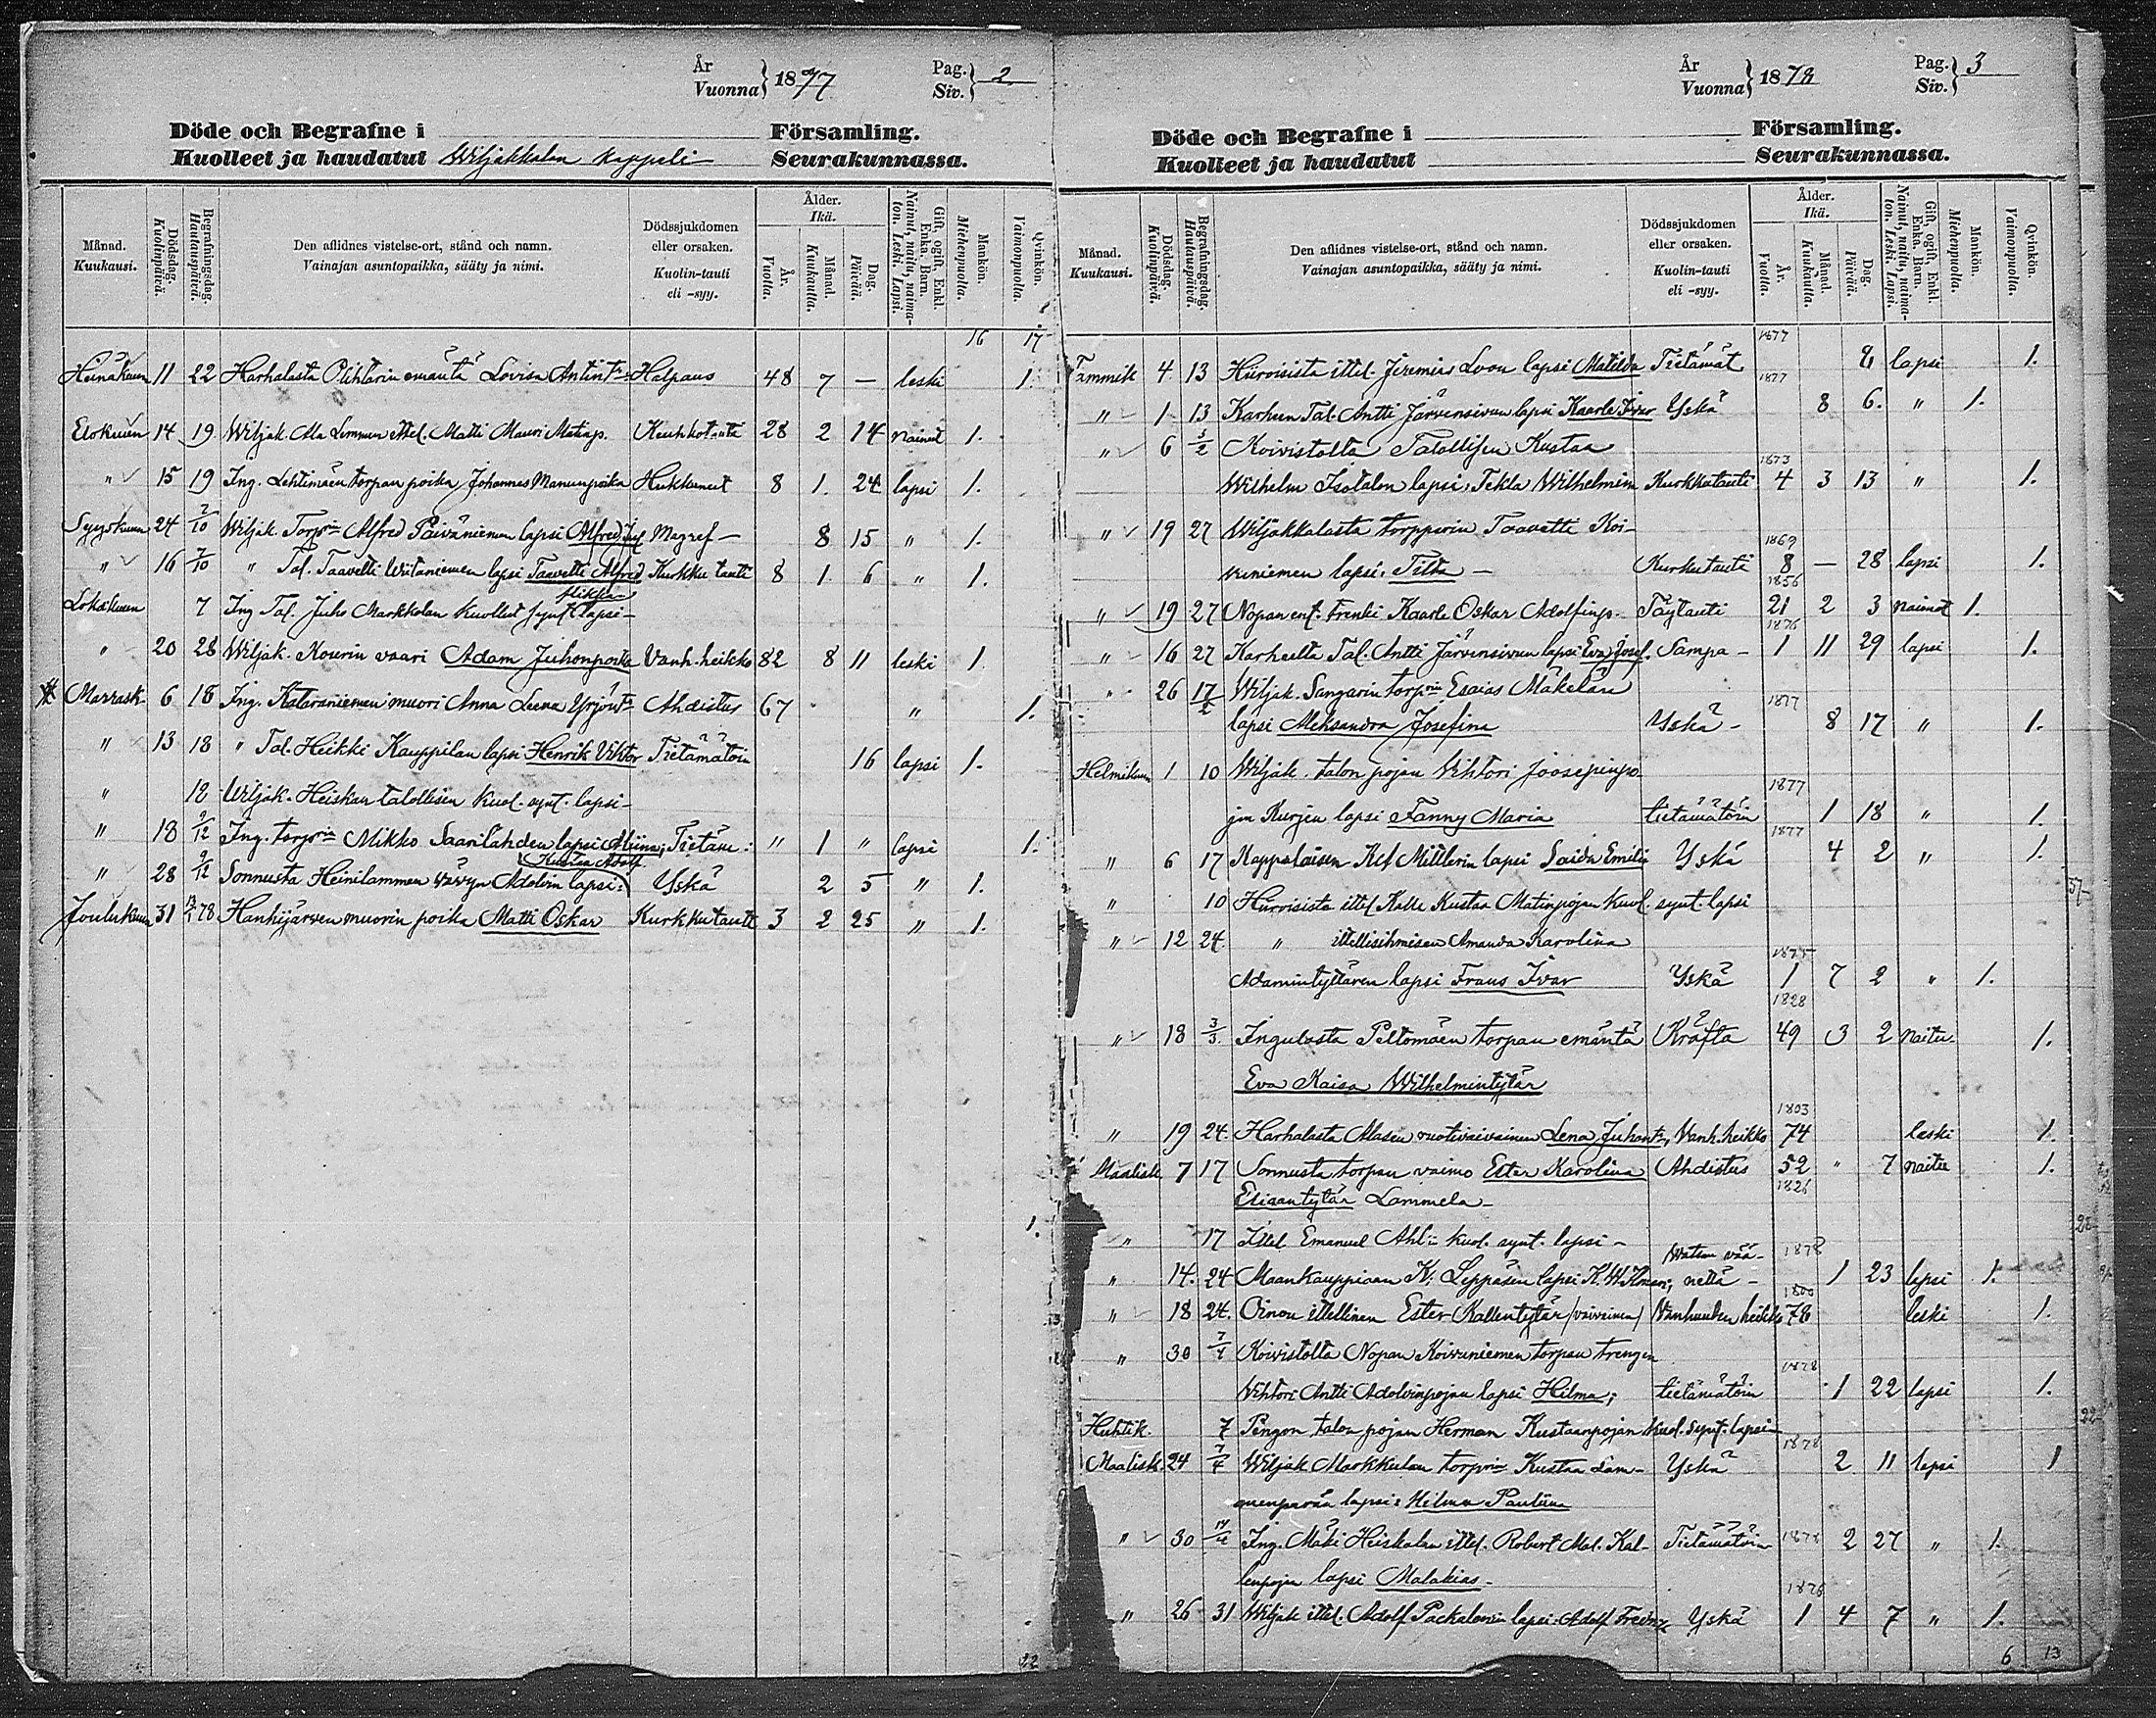 År
Vuonna } 1877
Pag.
Siv. } 2
Döde och Begrafne i Församling.
Kuolleet ja haudatut Wiljakkalan kappeli Seurakunnassa.
Månad. Kuukausi.
Dödsdag. Kuolinpäivä.
Begrafningsdag. Hautauspäivä.
Den aflidnes vistelse-ort, stånd och namn.
Vainajan asuntopaikka, sääty ja nimi.
Dödssjukdomen eller orsaken.
Kuolin-tauti eli -syy.
Ålder. Ikä.
År. Vuotta.
Månad. Kuukautta.
Dag. Päivää.
Gift, ogift, Enkl. Enka. Barn.
Nainut, naitu, naimaton. Leski. Lapsi.
Mankön. Miehenpuolia.
Qvinkön. Vaimonpuolia.
16 17
Heinäkuun 11 22 Harhalasta emäntä Lovisa Halpaus 48 7 — leski 1.
Elokuun 14 19 Wiljak. Ala Lemmun ittel. Matti Mauri Matinp. Keuhkotauti 28 2 14 nainut 1.
" 15 19 Ing. Lehtimäen torpan poika Johannes Manunpoika Hukkunut 8 1. 24 lapsi 1.
Syyskuun 24 2/10 Wiljak. Torp:rin Alfred Päiväniemen lapsi Alfred Magref — 8 15 " 1.
" 16 7/10 " Tal. Taavetti Wiitaniemen lapsi Taavetti Alfred Kurkku tauti 8 1 6 " 1.
Lokakuun 7 Ing Tal. Juho Markkolan kuollut synt. lapsi —
" 20 28 Wiljak. Kourin vaari Adam Juhonpoika Vanh. heikko 82 8 11 leski 1
Marrask. 6 18 Ing. Kataraniemen muori Anna Leena Yrjönt. Ahdistus 67 " 1.
" 13 18 " Tal. Heikki Kauppilan lapsi Henrik Viktor Tietämätöin 16 lapsi 1.
" 12 Wiljak. Heiskan talollisen kuol. synt. lapsi —
" 18 9/12 Ing. torp:rin Mikko Saarilahden lapsi Miina; Tietäm: " 1 " lapsi 1.
Kustaa Adolf
" 28 9/12 Sonnusta Heinilammen vävyn Adolvin lapsi: Yskä 2 5 " 1.
Joulukuun 31 13/1 78 Hanhijärven muorin poika Matti Oskar Kurkkutauti 3 2 25 " 1.
1.
22
År
Vuonna } 1878
Pag.
Siv. } 3
Döde och Begrafne i Församling.
Kuolleet ja haudatut Seurakunnassa.
Månad. Kuukausi.
Dödsdag. Kuolinpäivä.
Begrafningsdag. Hautauspäivä.
Den aflidnes vistelse-ort, stånd och namn.
Vainajan asuntopaikka, sääty ja nimi.
Dödssjukdomen eller orsaken.
Kuolin-tauti eli -syy.
Ålder. Ikä.
År. Vuotta.
Månad. Kuukautta.
Dag. Päivää.
Gift, ogift, Enkl. Enka. Barn.
Nainut, naitu, naimaton. Leski. Lapsi.
Mankön. Miehenpuolia.
Qvinkön. Vaimonpuolia.
1877
Tammik 4 13 Hiiroisista ittel. Jeremias Loon lapsi Matilda Tietämät. lapsi 1.
1877
" 1 13 Karheen Tal. Antti Järvensivun lapsi Kaarle Ivar Yskä 8 6. " 1.
" 6 3/2 Koivistolta Talollisen Kustaa
1873
Wilhelm Isotalon lapsi, Tekla Wilhelmina Kurkkutauti 4 3 13 " 1.
" 19 27 Wiljakkalasta torpparin Taavetti Koi-
1869
vuniemen lapsi: Tilta — Kurkutauti 8 — 28 lapsi 1.
1856
" 19 27 Nopan ent. trenki Kaarle Oskar Adolfinp. 21 2 3 nainut 1.
1876
" 16 27 Karheelta Tal. Antti Järvensivun lapsi Eva Josef. Sampa — 1 11 29 lapsi 1.
" 26 17/2 Wiljak. Sangarin torp:rin Esaias Mäkelän
1877
lapsi Aleksandra Josefina Yskä — 8 17 " 1.
Helmikuun 1 10 Wiljak. talon pojan Vihtori Joosepinpo-
1877
jan Kurjen lapsi Fanny Maria tietämätöin 1 18 " 1.
1877
" 6 17 Kappalaisen Millerin lapsi Saida Emilia Yskä 4 2 " 1.
" 10 Hiiroisista ittel Kalle Kustaa Matinpojan kuol. synt. lapsi
" 12 24. " itellisihmisen Amanda Karolina
1875
Adamintyttären lapsi Frans Ivar Yskä 1 7 2 " 1.
1828
" 18 3/3. Ingulasta Peltomäen torpan emäntä Kräfta 49 3 2 naitu. 1.
Eva Kaisa Wilhelmintytär
1803
" 19 24. Harhalasta Alasen ruotivaivainen Lena Juhont:, Vanh. heikko 74 leski 1.
Maalisk 7 17 Sonnusta torpan vaimo Ester Karolina Ahdistus 52 " 7 naitu 1.
1826
Eliaantytär Lammela —
" 17 Ittel Emanuel Ahl:n kuol. synt. lapsi —
Watsan vää- 1878
" 14. 24 Maankauppiaan K: Leppäsen lapsi K. W. Ilmari; nettä — 1 23 lapsi 1.
1800
" 18 24. Oinon itellinen Ester Kallentytär (vaivainen) Vanhuuden heikko 78 leski 1.
" 30 7/4 Koivistolta Nopan Koivuniemen torpan trengin
1878
Vihtori Antti Adolvinpojan lapsi Hilma; tietämätöin 1 22 lapsi 1.
Huhtik. 7 Pengon talon pojan Herman Kustaanpojan kuol. synt. lapsi —
1878
Maalisk. 24 7/4 Wiljak Markkulan torp:rin Kustaa Lam- Yskä 2 11 lapsi 1
menperän lapsi: Hilma Pauliina
" 30 14/4 Ing. Mäki Heiskalan ittel. Robert Mal. Kal- Tietämätöin 1878 2 27 " 1.
lenpojan lapsi Malakias —
1876
" 26 31 Wiljak ittel. Adolf Packalenin lapsi Adolf Fredrik Yskä 1 4 7 " 1.
6 13